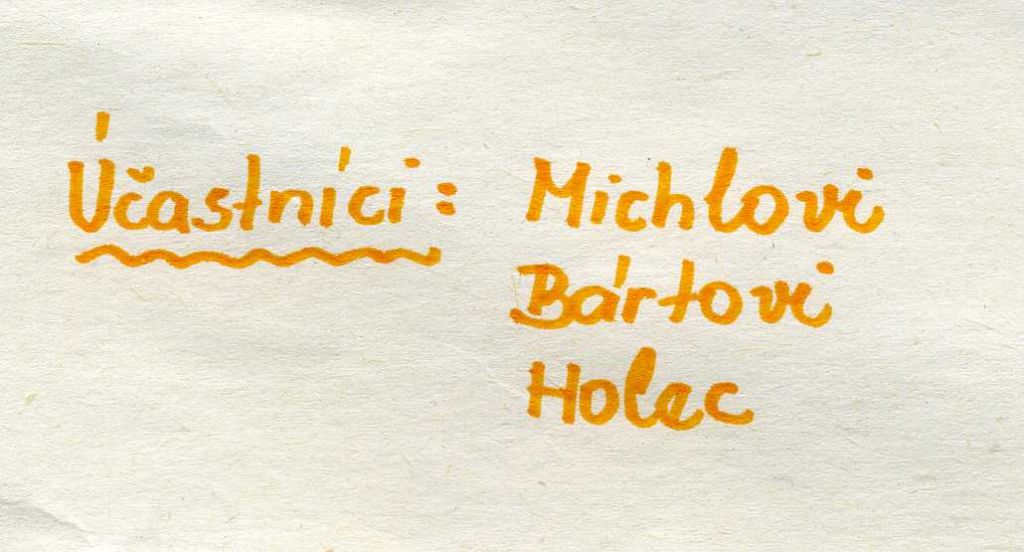 Účastníci: Michlovi
Bártovi
Holec